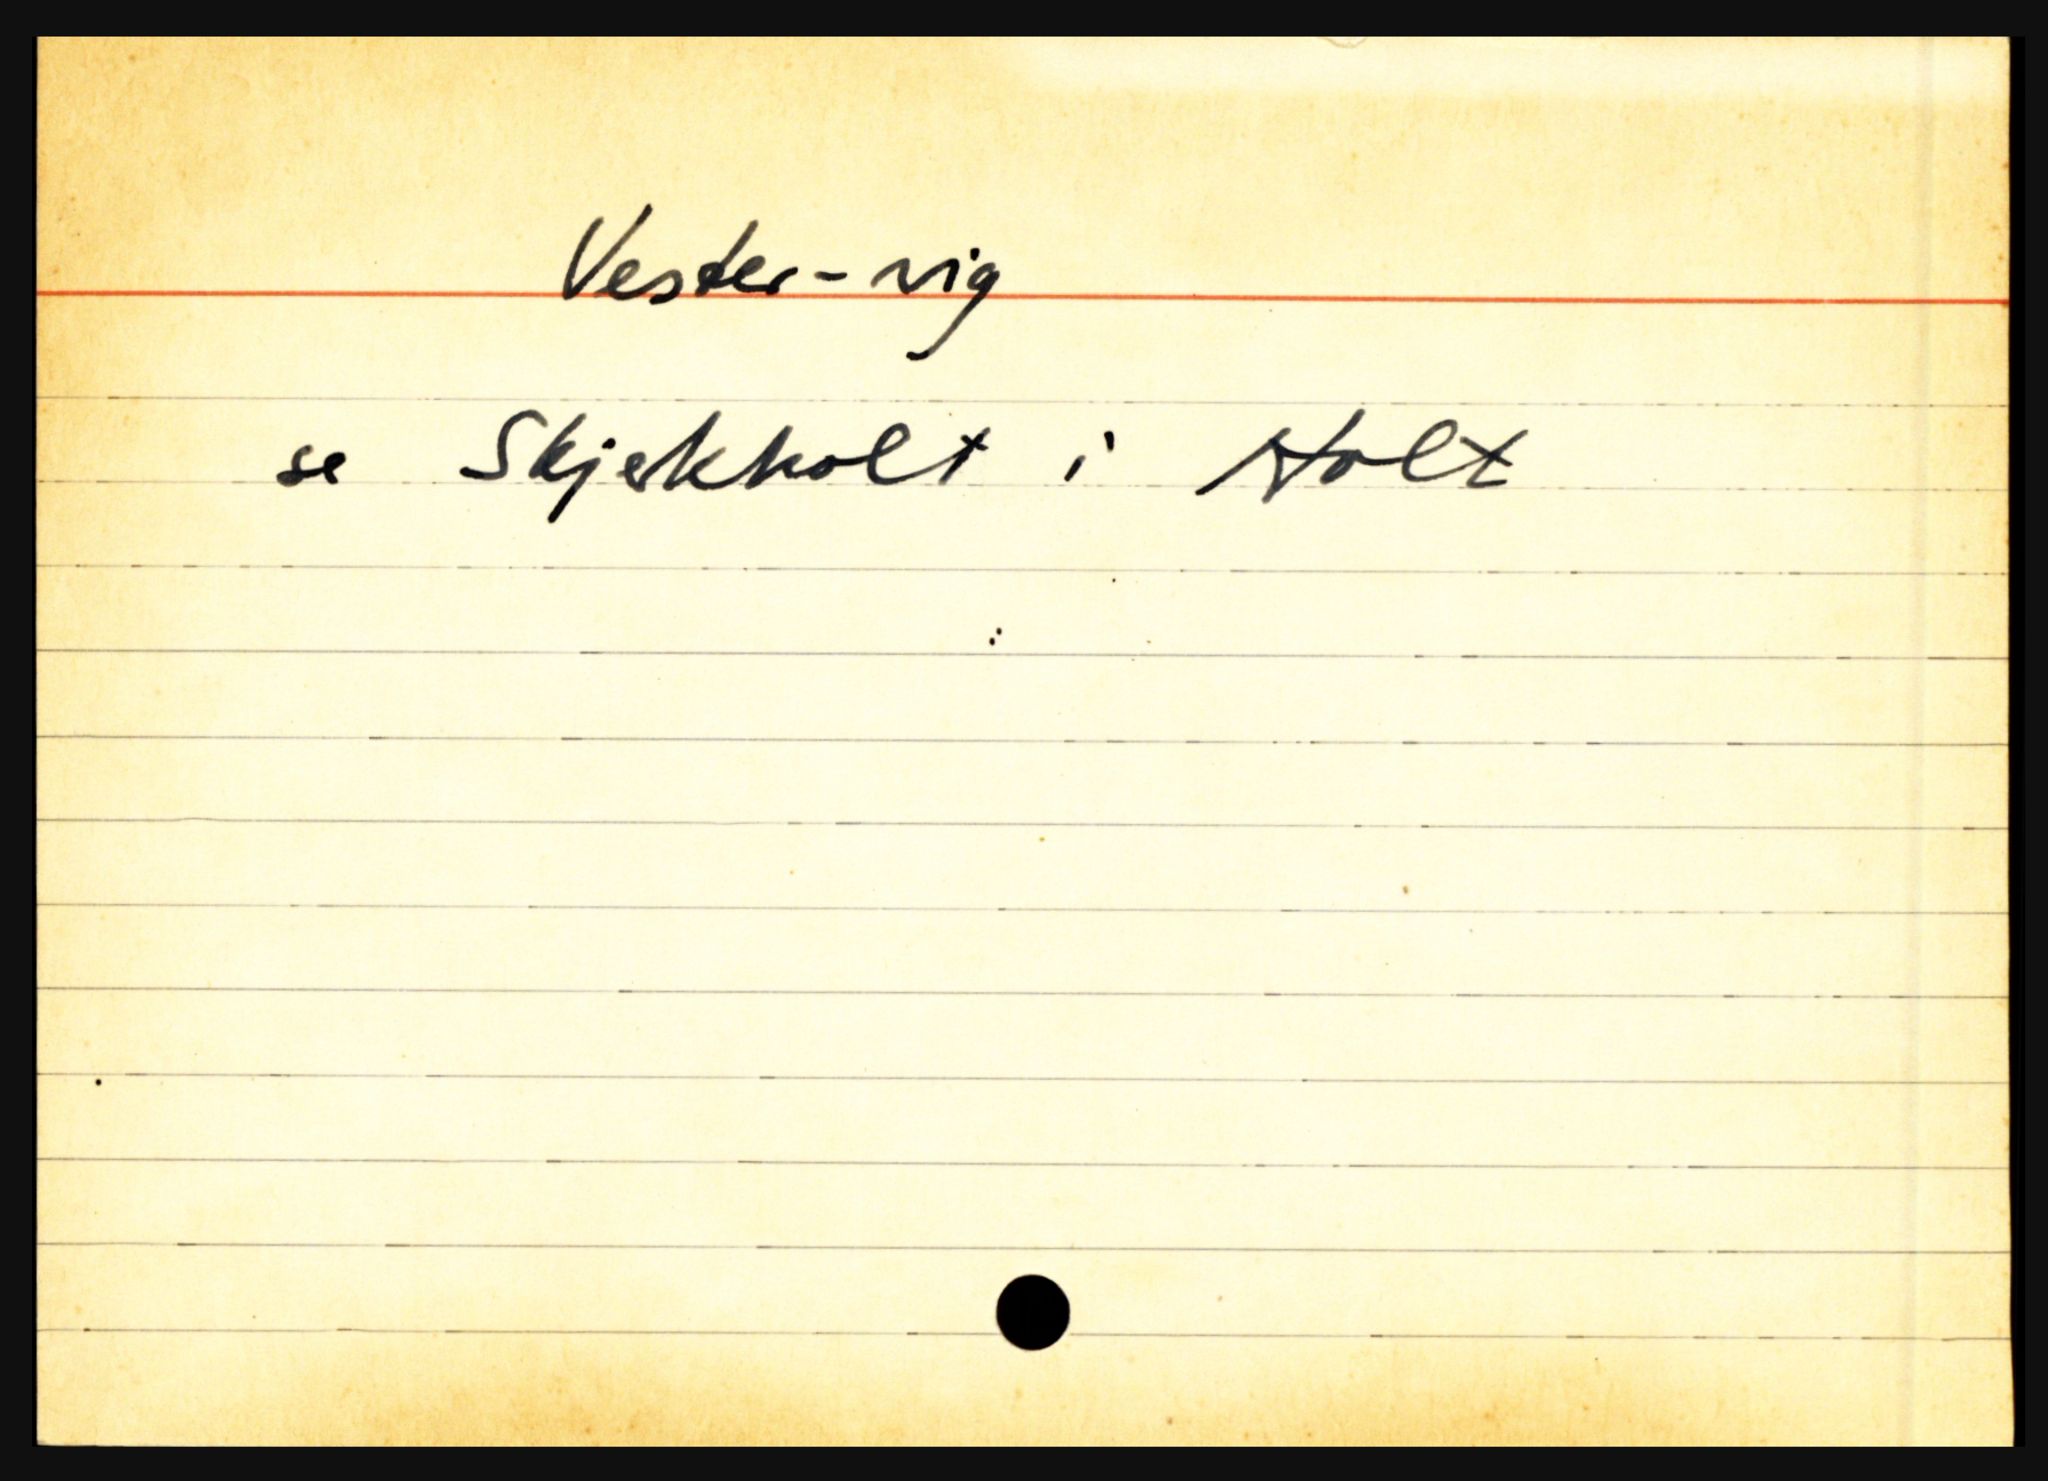 Vester-vig
se Skjerkholt i Holt